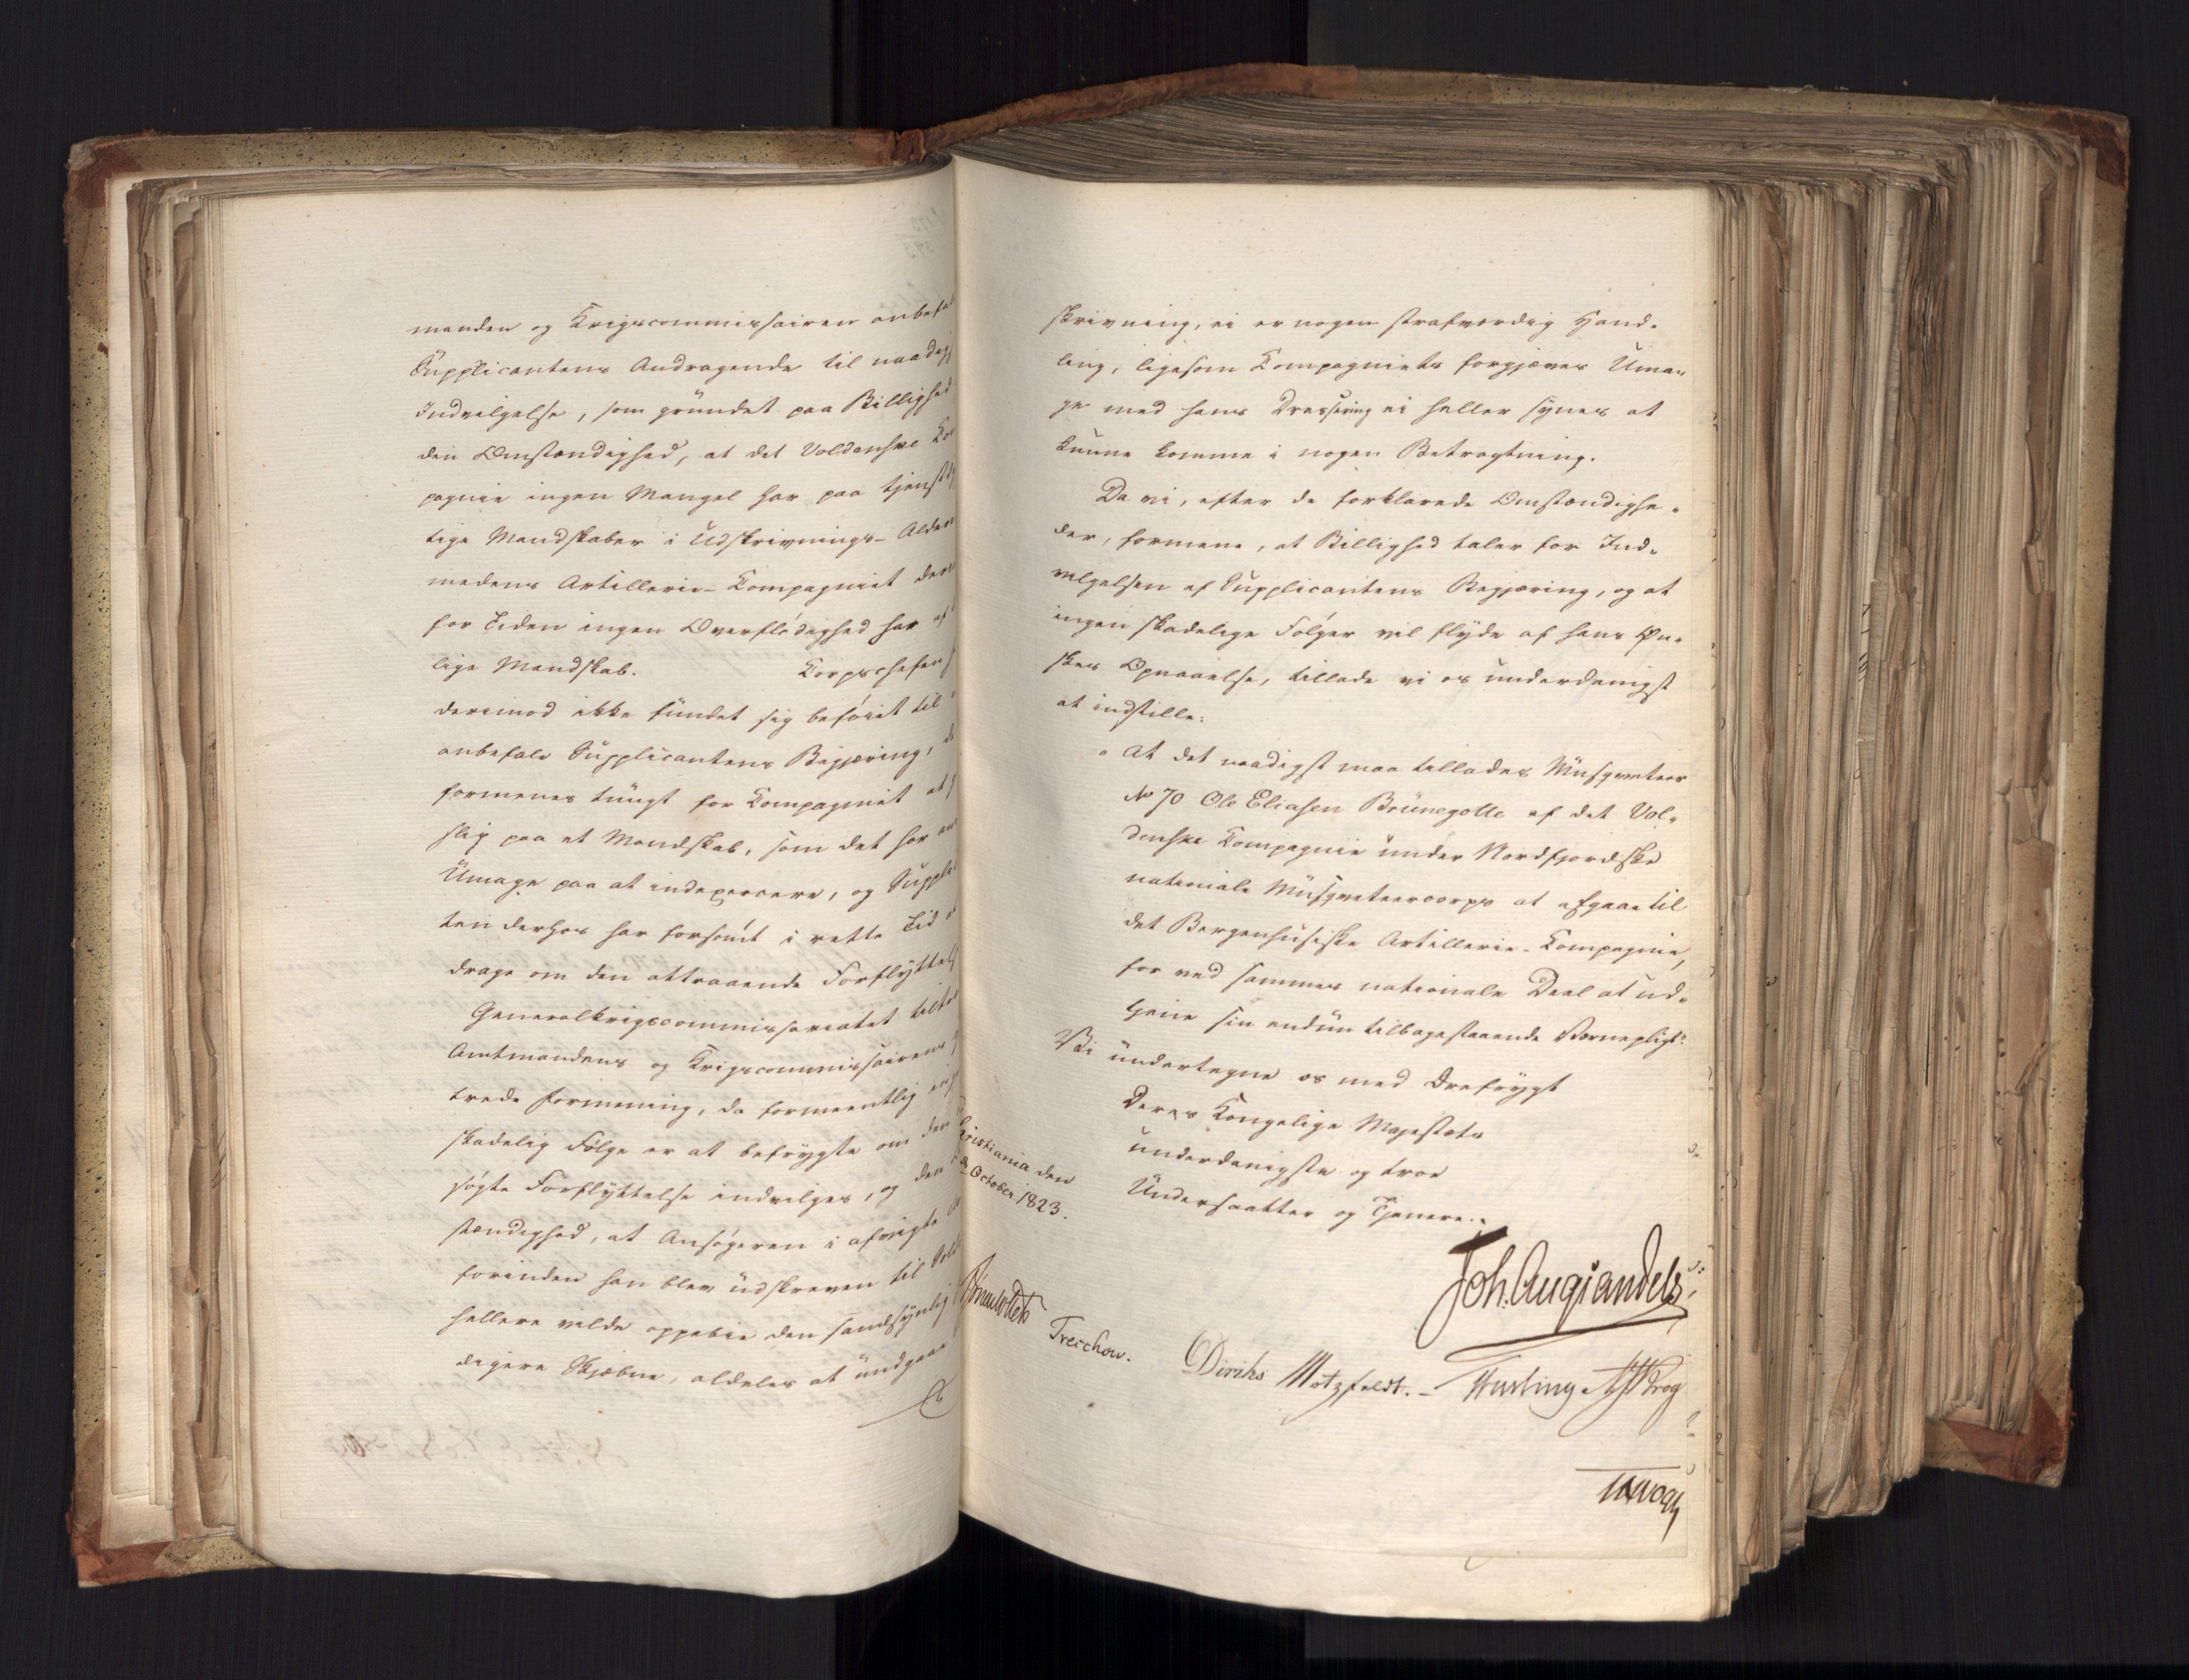 manden og Krigscommissairen anbefa
Supplicantens Andragende til naadigs
Indvilgelse, som grundet paa Billighed
den Omstændighed, at det Voldenske Com
pagnie ingen Mangel har paa tjenstd
tige Mandskaber i Udskrivnings-Alder
medens Artillerie-Compagniet der
for Tiden ingen Overflødighed har af
lige Mandskab. Corpschefen
derimod ikke fundet sig beføiet til
anbefale Supplicantens Begjæring, da
formenes tungt for Compagniet at
slig paa et Mandskab, som det har an
Umage paa at indexercere, og Suppli
ten derhos har forsømt i rette Tid a
drage om den attraaende Forflyttels
Generalkrigscommissariatet tiltr
Amtmandens og Krigscommissairens
trede Formening, da formeentlig ing
skadelig Følge er at befrygte om den
søgte Forflyttelse indvilges, og den
stændighed, at Ansøgeren i afvigte
forinden han blev udskreven til Sold
hellere vilde oppebie den sandsynlig
digere Skjæbne, aldeles at undgaae
skrivning, ei er nogen strafværdig Hand-
ling, ligesom Compagniets forgjæves Uma-
ge med hans Dressering ei heller synes at
kunne komme i nogen Betragtning.
Da vi, efter de forklarede Omstændighe-
der, formene, at Billighed taler for Ind-
vilgelsen af Supplicantens Begjæring, og at
ingen skadelige Følger vil flyde af hans Øn-
skes Opnaaelse, tillade vi os underdanigst
at indstille:
"At det naadigst maa tillades Musqueteer
No 70 Ole Eliasen Brünegotte af det Vol-
denske Compagnie under Nordfjordske
nationale Musqueteercorps at afgaae til
det Bergenhusiske Artillerie-Compagnie,
for ved sammes nationale Deel at ud-
tjene sin endnu tilbagestaaende Værnepligt."
Vi undertegne os med Ærefrygt
Deres Kongelige Majestæts
underdanigste og troe
Undersaatter og Tjenere.
Christiania den
October 1823.
Joh. Aug. Sandels
Treschow.
Diriks Motzfeldt. Fasting Krog